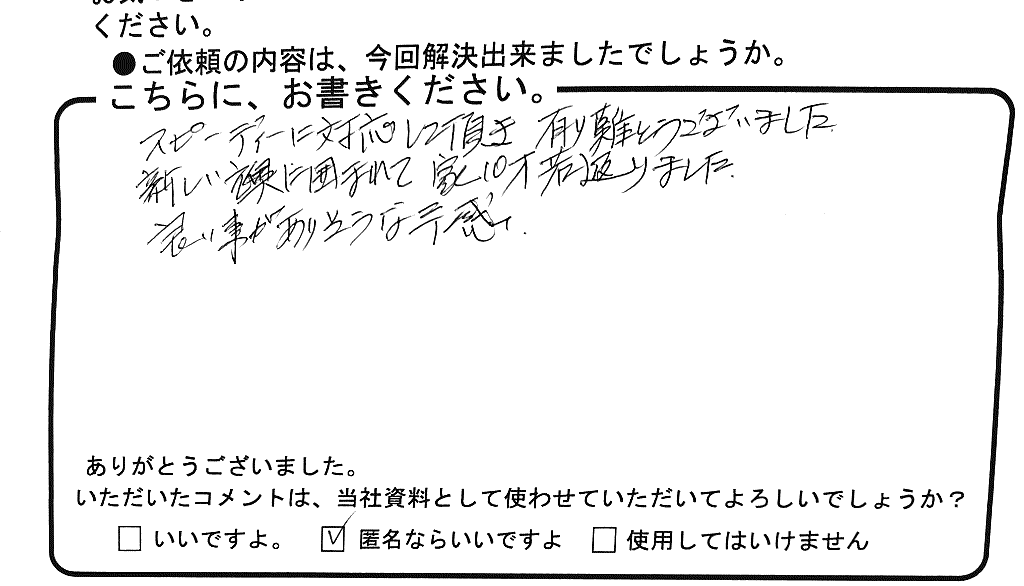 ください。
●ご依頼の内容は、今回解決出来ましたでしょうか。
こちらに、お書きください。
スピーディーに対応して頂き 有り難とうございました
新しい塀に囲まれて 家も10才若返りました.
良い事がありそうな予感、.
ありがとうございました。
いただいたコメントは、当社資料として使わせていただいてよろしいでしょうか？
いいですよ。 匿名ならいいですよ 使用してはいけません